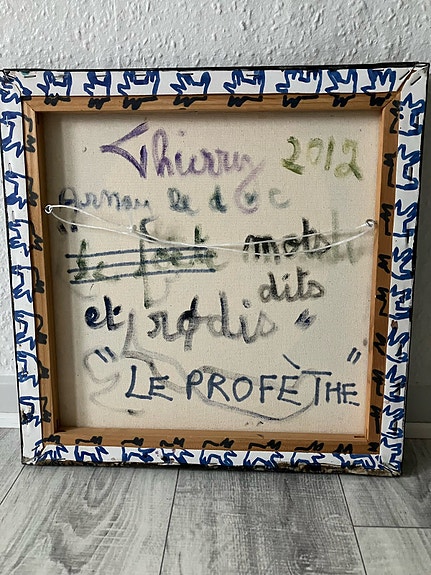 Thierry 2012
Arnau le d c
mots
dits
et rodis "
"LE PROFÈTHE"